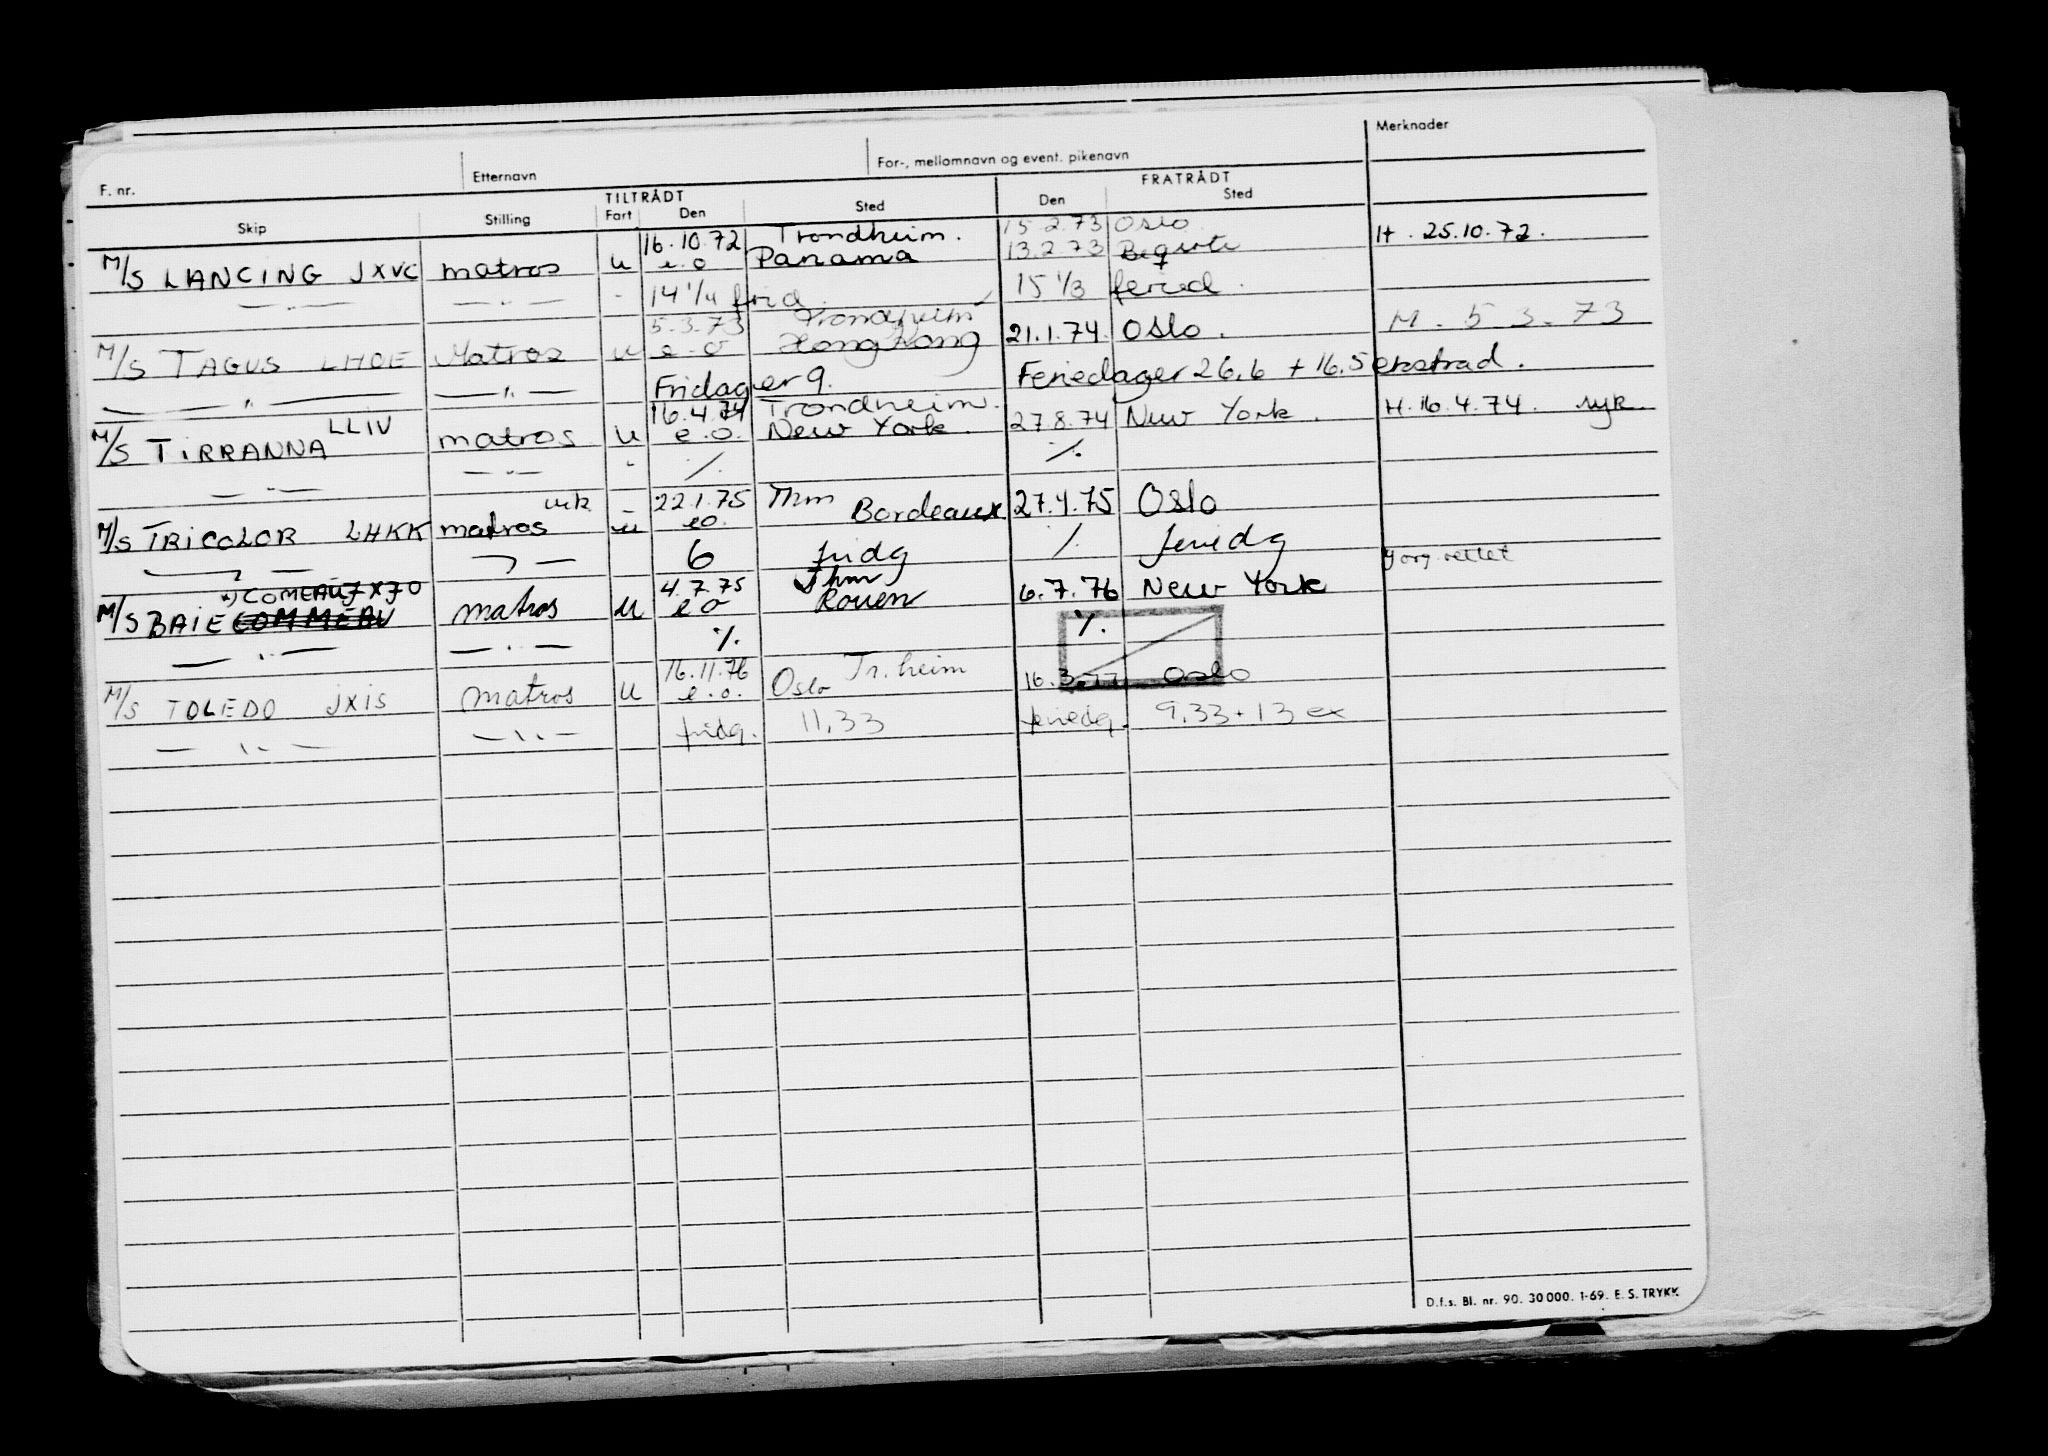 F. nr. Etternavn For-, mellomnavn og event. pikenavn Merknader
TILTRÅDT FRATRÅDT
Skip Stilling Fart Den Sted Den Sted
16.10.72 Trondheim. 15.2.73 Oslo.
M/S LANCING JXVC matros u e.o Panama 13.2.73 H. 25.10.72.
— " — — " — - 14 1/4 frid. 15 1/3 feried.
5.3.73 Trondheim
M/S TAGUS LHOE Matros u e.o Hong Kong 21.1.74. Oslo. M. 5.3.73
— " — — " — Fridager 9. Feriedager 26,6 + 16,5 ekstrad.
16.4.74 Trondheim.
M/S TIRRANNA LLIV matros u e.o. New York. 27.8.74 New York. H. 16.4.74. syk.
— " — — " — - ./. ./.
22.1.75 Thm
M/S TRICOLOR LHKK matros u eo. Bordeaux 27.4.75 Oslo
— " — — " — 6 fridg ./. feriedg
*) COMEAU JXJO 4.7.75 Thm *) org. rettet
M/S BAIE COMMEAU matros u e o Rouen 6.7.76 New York
— " — — " — ./. ./.
16.11.76 Tr.heim
M/S TOLEDO JXIS matros u e.o. Oslo 16.3.77 Oslo
— " — — " — fridg. 11,33 feriedg. 9,33 + 13 ex
D.f.s. Bl. nr. 90. 30 000. 1-69. E. S. TRYKK